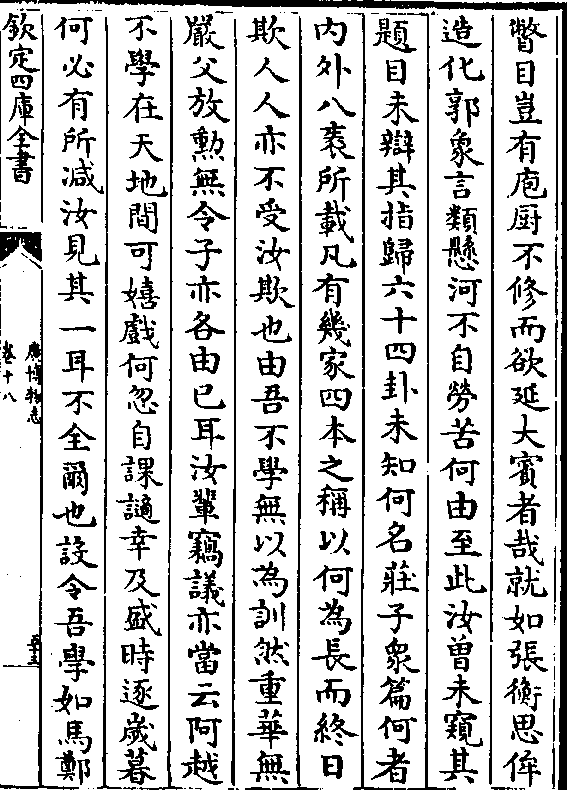 瞥目豈有庖厨不修而欲延大賓者哉就如張衡思侔
造化郭象言類懸河不自勞苦何由至此汝曽未窺其
題目未辯其指歸六十四卦未知何名莊子衆篇何者
内外八袠所載凡有幾家四本之稱以何為長而終日
欺人人亦不受汝欺也由吾不學無以為訓然重華無
嚴父放勲無令子亦各由已耳汝輩竊議亦當云阿越
不學在天地間可嬉戲何忽自課讁幸及盛時逐歲暮
何必有所减汝見其一耳不全爾也設令吾學如馬鄭
欽定四庫全書
廣博物志
卷十八